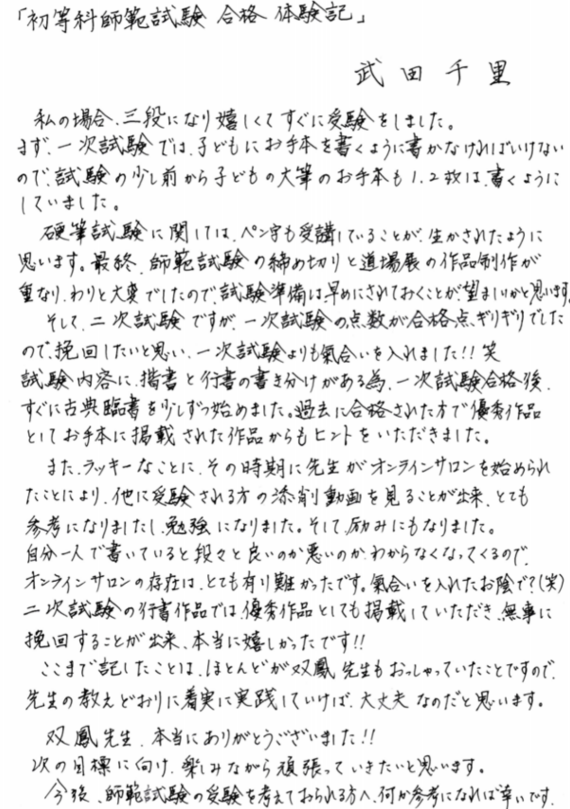 「初等科師範試験 合格 体験記」
武田千里
私の場合、三段になり嬉しくてすぐに受験をしました。
まず、一次試験では、子どもにお手本を書くように書かなければいけない
ので、試験の少し前から子どもの大筆のお手本も1、2枚は、書くように
していました。
硬筆試験に関しては、ペン字も受講していることが、生かされたように
思います。最終、師範試験の締め切りと道場展の作品制作が
重なり、わりと大変でしたので、試験準備は早めにされておくことが、望ましいかと思います。
そして、二次試験ですが、一次試験の点数が合格点ギリギリでした
ので、挽回したいと思い、一次試験よりも氣合いを入れました!!笑
試験内容に、楷書と行書の書き分けがある為、一次試験合格後、
すぐに古典臨書を少しずつ始めました。過去に合格された方で優秀作品
としてお手本に掲載された作品からもヒントをいただきました。
また、ラッキーなことに、その時期に先生がオンラインサロンを始められ
たことにより、他に受験される方の添削動画を見ることが出来、とても
参考になりましたし、勉強になりました。そして、励みにもなりました。
自分一人で書いていると段々と良いのか悪いのか、わからなくなってくるので、
オンラインサロンの存在は、とても有り難かったです。氣合いを入れたお陰で?(笑)
二次試験の行書作品では、優秀作品としても掲載していただき、無事に
挽回することが出来、本当に嬉しかったです!!
ここまで記したことは、ほとんどが双鳳先生もおっしゃっていたことですので、
先生の教えどおりに着実に実践していけば、大丈夫なのだと思います。
双鳳先生、本当にありがとうございました!!
次の目標に向け、楽しみながら頑張っていきたいと思います。
今後、師範試験の受験を考えておられる方へ、何か参考になれば幸いです。